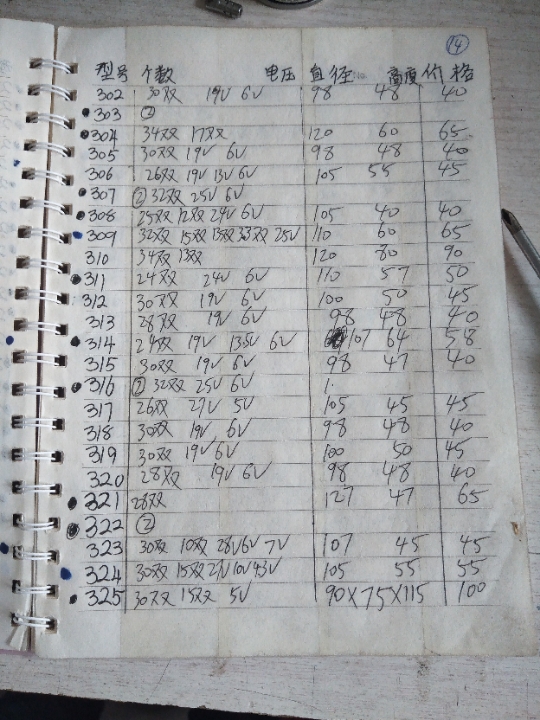 14
型号 个数 电压 直径 高度 价格
302 30双 19V 6V 98 48 40
303 ②
304 34双 17双 120 60 65
305 30双 19V 6V 98 48 40
306 26双 19V 13V 6V 105 55 45
307 ② 32双 25V 6V
308 25双 12双 29V 6V 105 40 40
309 32双 15双 13双 33双 25V 110 60 65
310 34双 13双 120 80 90
311 24双 24V 6V 110 57 50
312 30双 19V 6V 100 50 45
313 28双 19V 6V 98 48 40
314 29双 19V 13.5V 6V 107 64 58
315 30双 19V 6V 98 47 40
316 ② 32双 25V 6V
317 26双 21V 5V 105 45 45
318 30双 19V 6V 98 48 40
319 30双 19V 6V 100 50 45
320 28双 19V 6V 98 48 40
321 28双 127 47 65
322 ②
323 30双 10双 28V 6V 7V 107 45 45
324 30双 15双 21V 10V 105 55 55
325 30双 15双 5V 90X75X115 100